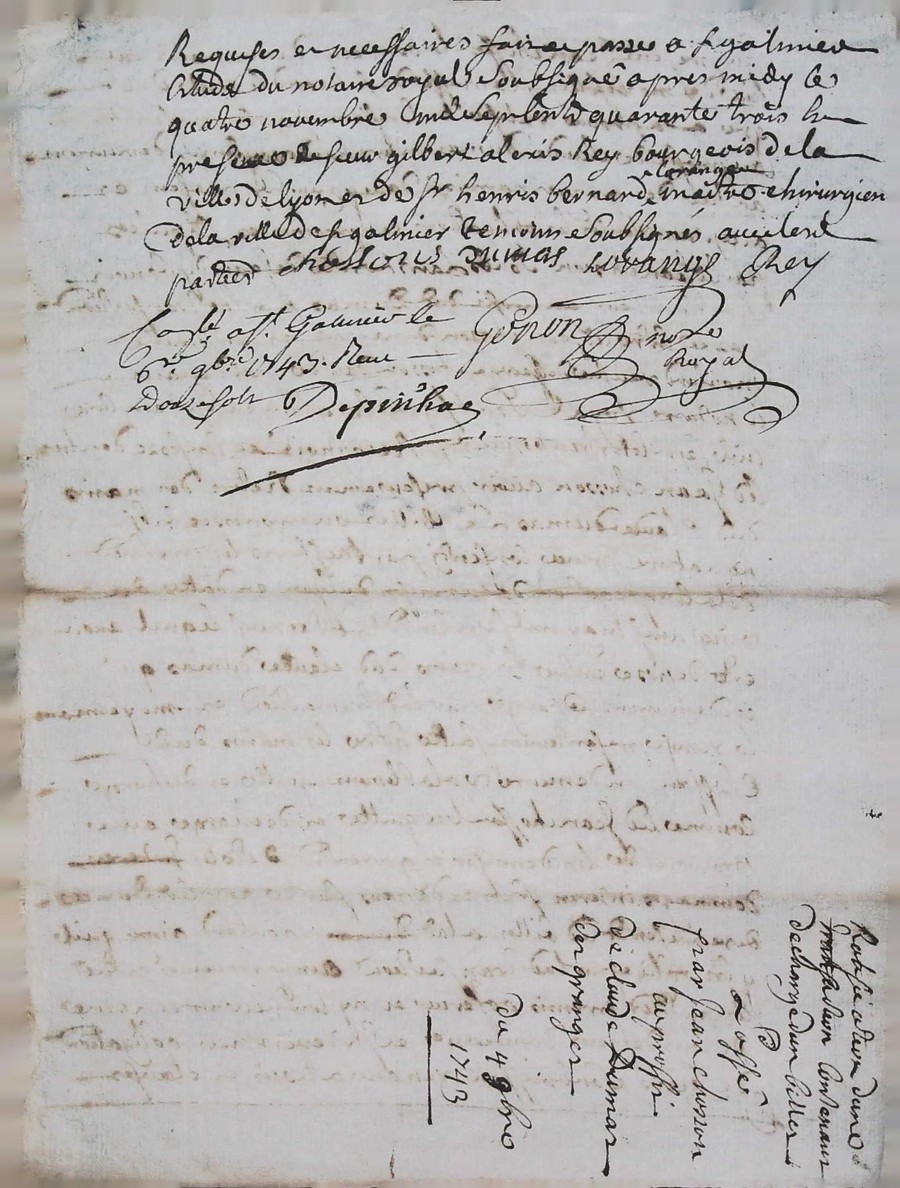 Requises et necessaires fait et passé a st galmier
Etude du notaire royal Soubsigné apres midy le
quatre novembre mil sept cent quarante trois En
presence de sieur gilbert alexis Rey bourgeois de la
ville de lyon et de sr henris bernard maitre chirurgien
lorange
de la ville de st galmier temoins Soubsignés avec led
chossons Dumas Lorange Rey
Gonon nore
Royal
a st Galmier le
9bre 1743. Recu
Douze sols
Ratification dune
transaction contenant
decharge dun billet
£ 3
par Jean chosson
au proffit
de claude Dumas
der granger
du 4 9bre
1743